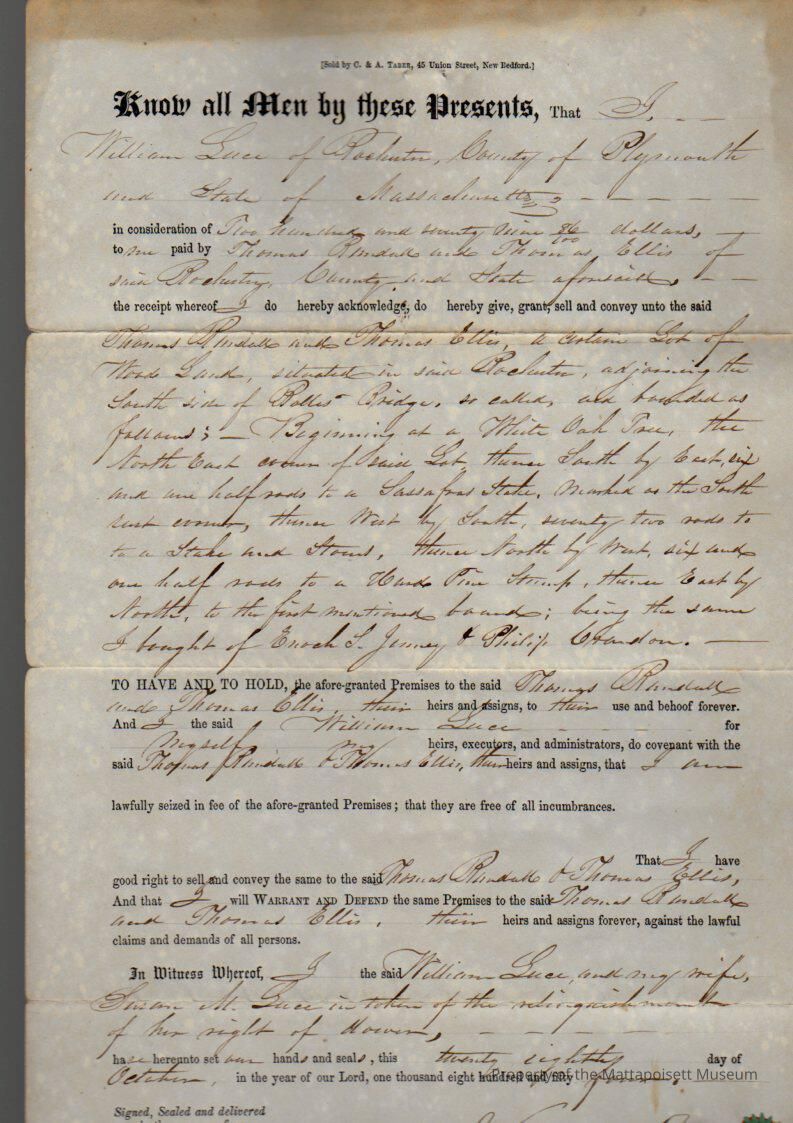 [Sold by C. & A. TABER, 45 Union Street, New Bedford.]
Know all Men by these Presents, That I,
William Luce of Rochester, County of Plymouth
and State of Massachusetts
in consideration of Two hundred and seventy nine dollars,
to me paid by Thomas Randall and Thomas Ellis of
said Rochester, County and State aforesaid,
the receipt whereof I do hereby acknowledge, do hereby give, grant, sell and convey unto the said
Thomas Randall and Thomas Ellis, a certain Lot of
Wood Land, situated in said Rochester, adjoining the
South side of Bridge, so called, and bounded as
follows; — Beginning at a White Oak Tree, the
North East corner of said Lot, thence South by East, six
and one half rods to a Sassafras Stake, marked as the South
east corner, thence West by South, seventy two rods to
to a Stake and Stones, thence North by West, six and
one half rods to a Hard Pine Stump, thence East by
North, to the first mentioned bound; being the same
I bought of Enoch S. Jenney & Philip Crandon. —
TO HAVE AND TO HOLD, the afore-granted Premises to the said Thomas Randall
and Thomas Ellis, their heirs and assigns, to their use and behoof forever.
And I the said William Luce for
myself my heirs, executors, and administrators, do covenant with the
said Thomas Randall & Thomas Ellis, their heirs and assigns, that I am
lawfully seized in fee of the afore-granted Premises; that they are free of all incumbrances.
That I have
good right to sell and convey the same to the said Thomas Randall & Thomas Ellis,
And that I will WARRANT AND DEFEND the same Premises to the said Thomas Randall
and Thomas Ellis, their heirs and assigns forever, against the lawful
claims and demands of all persons.
In Witness Whereof, I the said William Luce, and my wife,
Susan M. Luce in token of the relinquishment
of her right of dower,
have hereunto set our hands and seals, this twenty eighth day of
October, in the year of our Lord, one thousand eight hundred and fifty four.
Property of the Mattapoisett Museum
Signed, Sealed and delivered